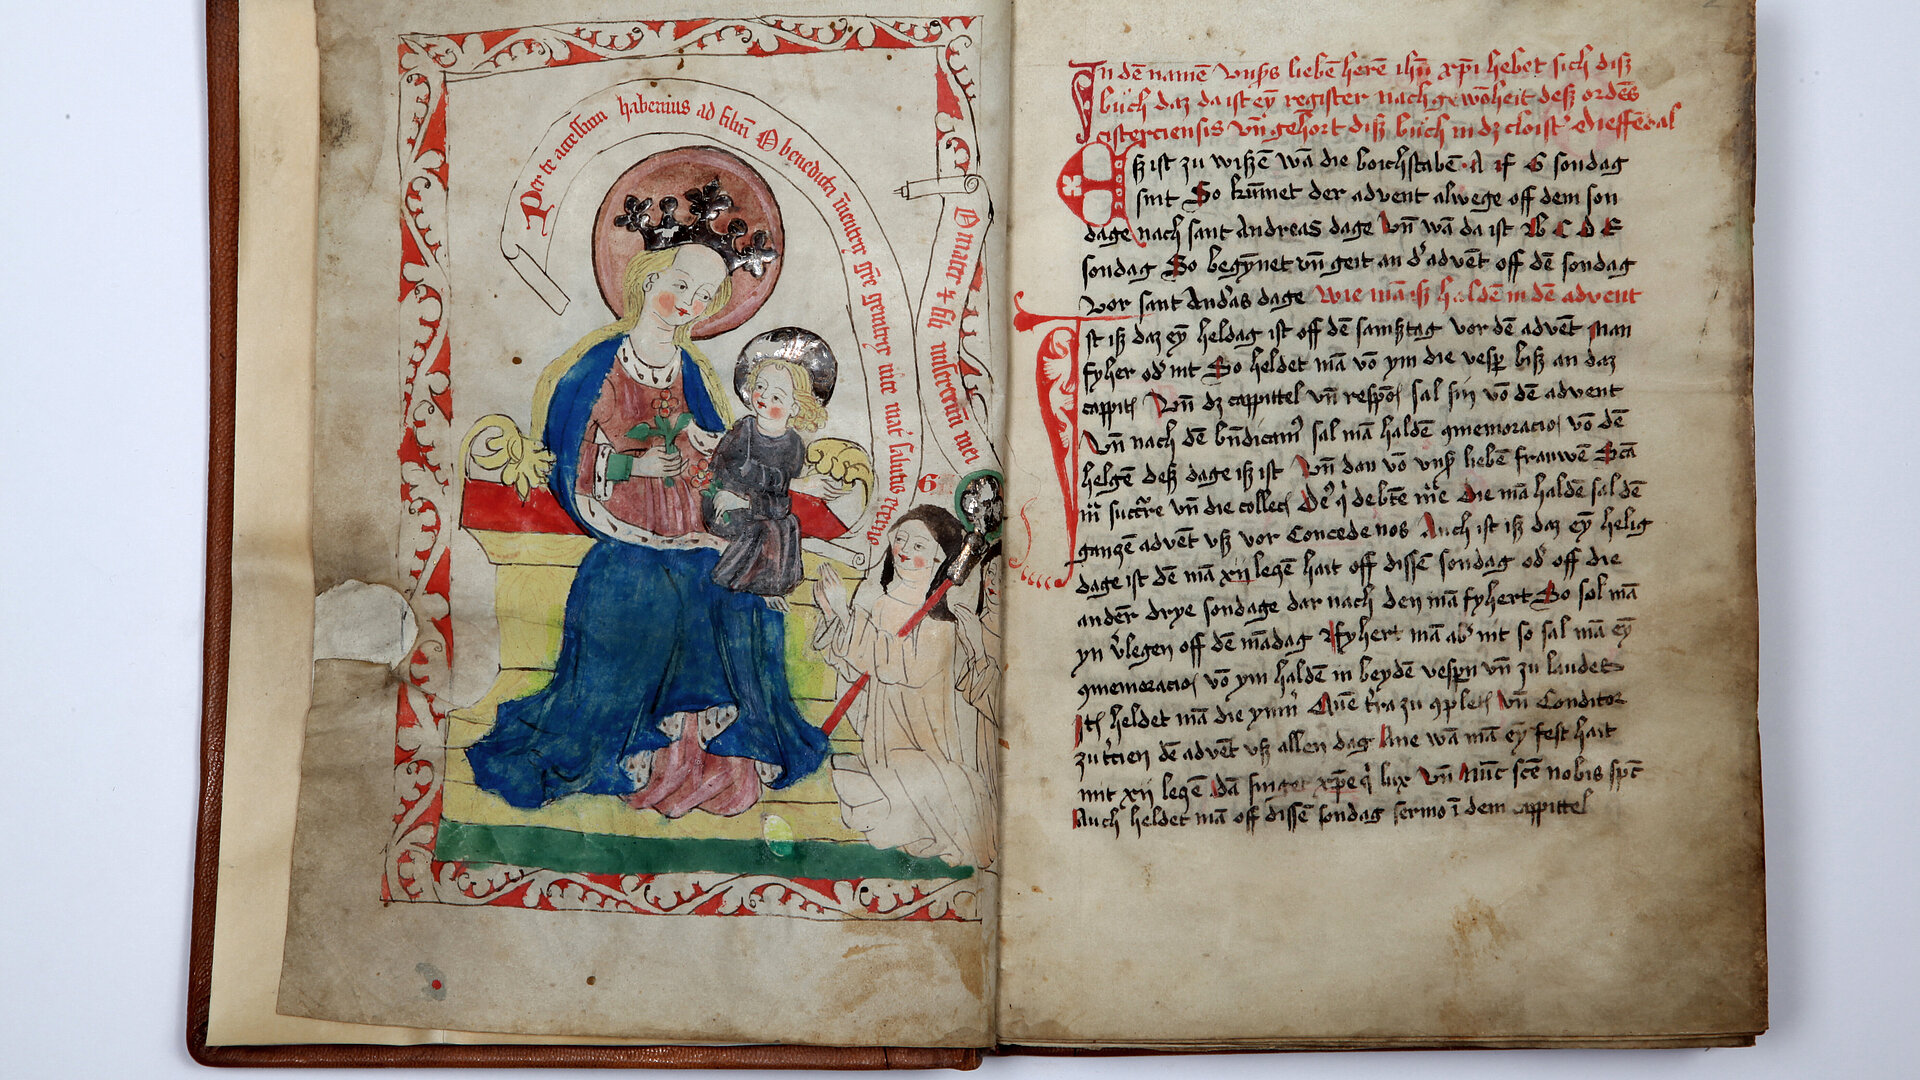 Per te accessum habemus ad filiū O benedicta īuentrix gr̄e genitrix vite mat' salutis eterne
O mater dei miserere mei
6
In dē namē vnsꝰs liebē herē ihū xp̄i hebet sich disz
buch daz da ist eȳ register nach gewonheit desz ordēs
cisterciensis vn̄ gehort disz buch in dz cloistꝰ dieffēdal
Esz ist zu wiszē wā die boichstabē A F G sondag
sint So kūmet der advent alwege off dem son
dage nach sant Andreas dage vn̄ wā da ist B C D E
sondag So begȳnet vn̄ geit an dꝰ advēt off dē sondag
vor sant Andꝰas dage Wie mā isz haldē in dē advent
Ist isz daz eȳ heldag ist off dē samsztag vor dē advēt man
fyher odꝰ nit So heldet mā vō ym die vespꝰ bisz an daz
cappitꝉ vn̄ dz cappittel vn̄ respōs sal sin vō dē advent
vn̄ nach dē bn̄dicamꝰ sal mā haldē ꝯmemoracio vō dē
helgē desz dage isz ist vn̄ dan vō vnsꝰ liebē frauwē Scā
die collect die mā haldē sal dē
ganzē advēt vsz vor Concede nos Auch ist isz daz eȳ helig
dage ist dē mā xij lezē hait off dissē sondag odꝰ off die
andeꝛ̄ drye sondage dar nach den mā fyhert So sol mā
yn vꝰlegen off dē mādag Fyhert mā abꝰ nit so sal mā eȳ
ꝯmemoracio vō ym haldē in beydē vespꝰn vn̄ zu laudes
Itē heldet mā die ymnꝰ zu ꝯpletꝰ vn̄ Conditor
dē advēt vsz allen dag Ane wā mā eȳ fest hait
mit xij lezē dā singet xp̄e qꝰ lux vn̄ Nūc scē nobis spc̄
Auch heldet mā off dissē sondag sermo ī dem cappittel